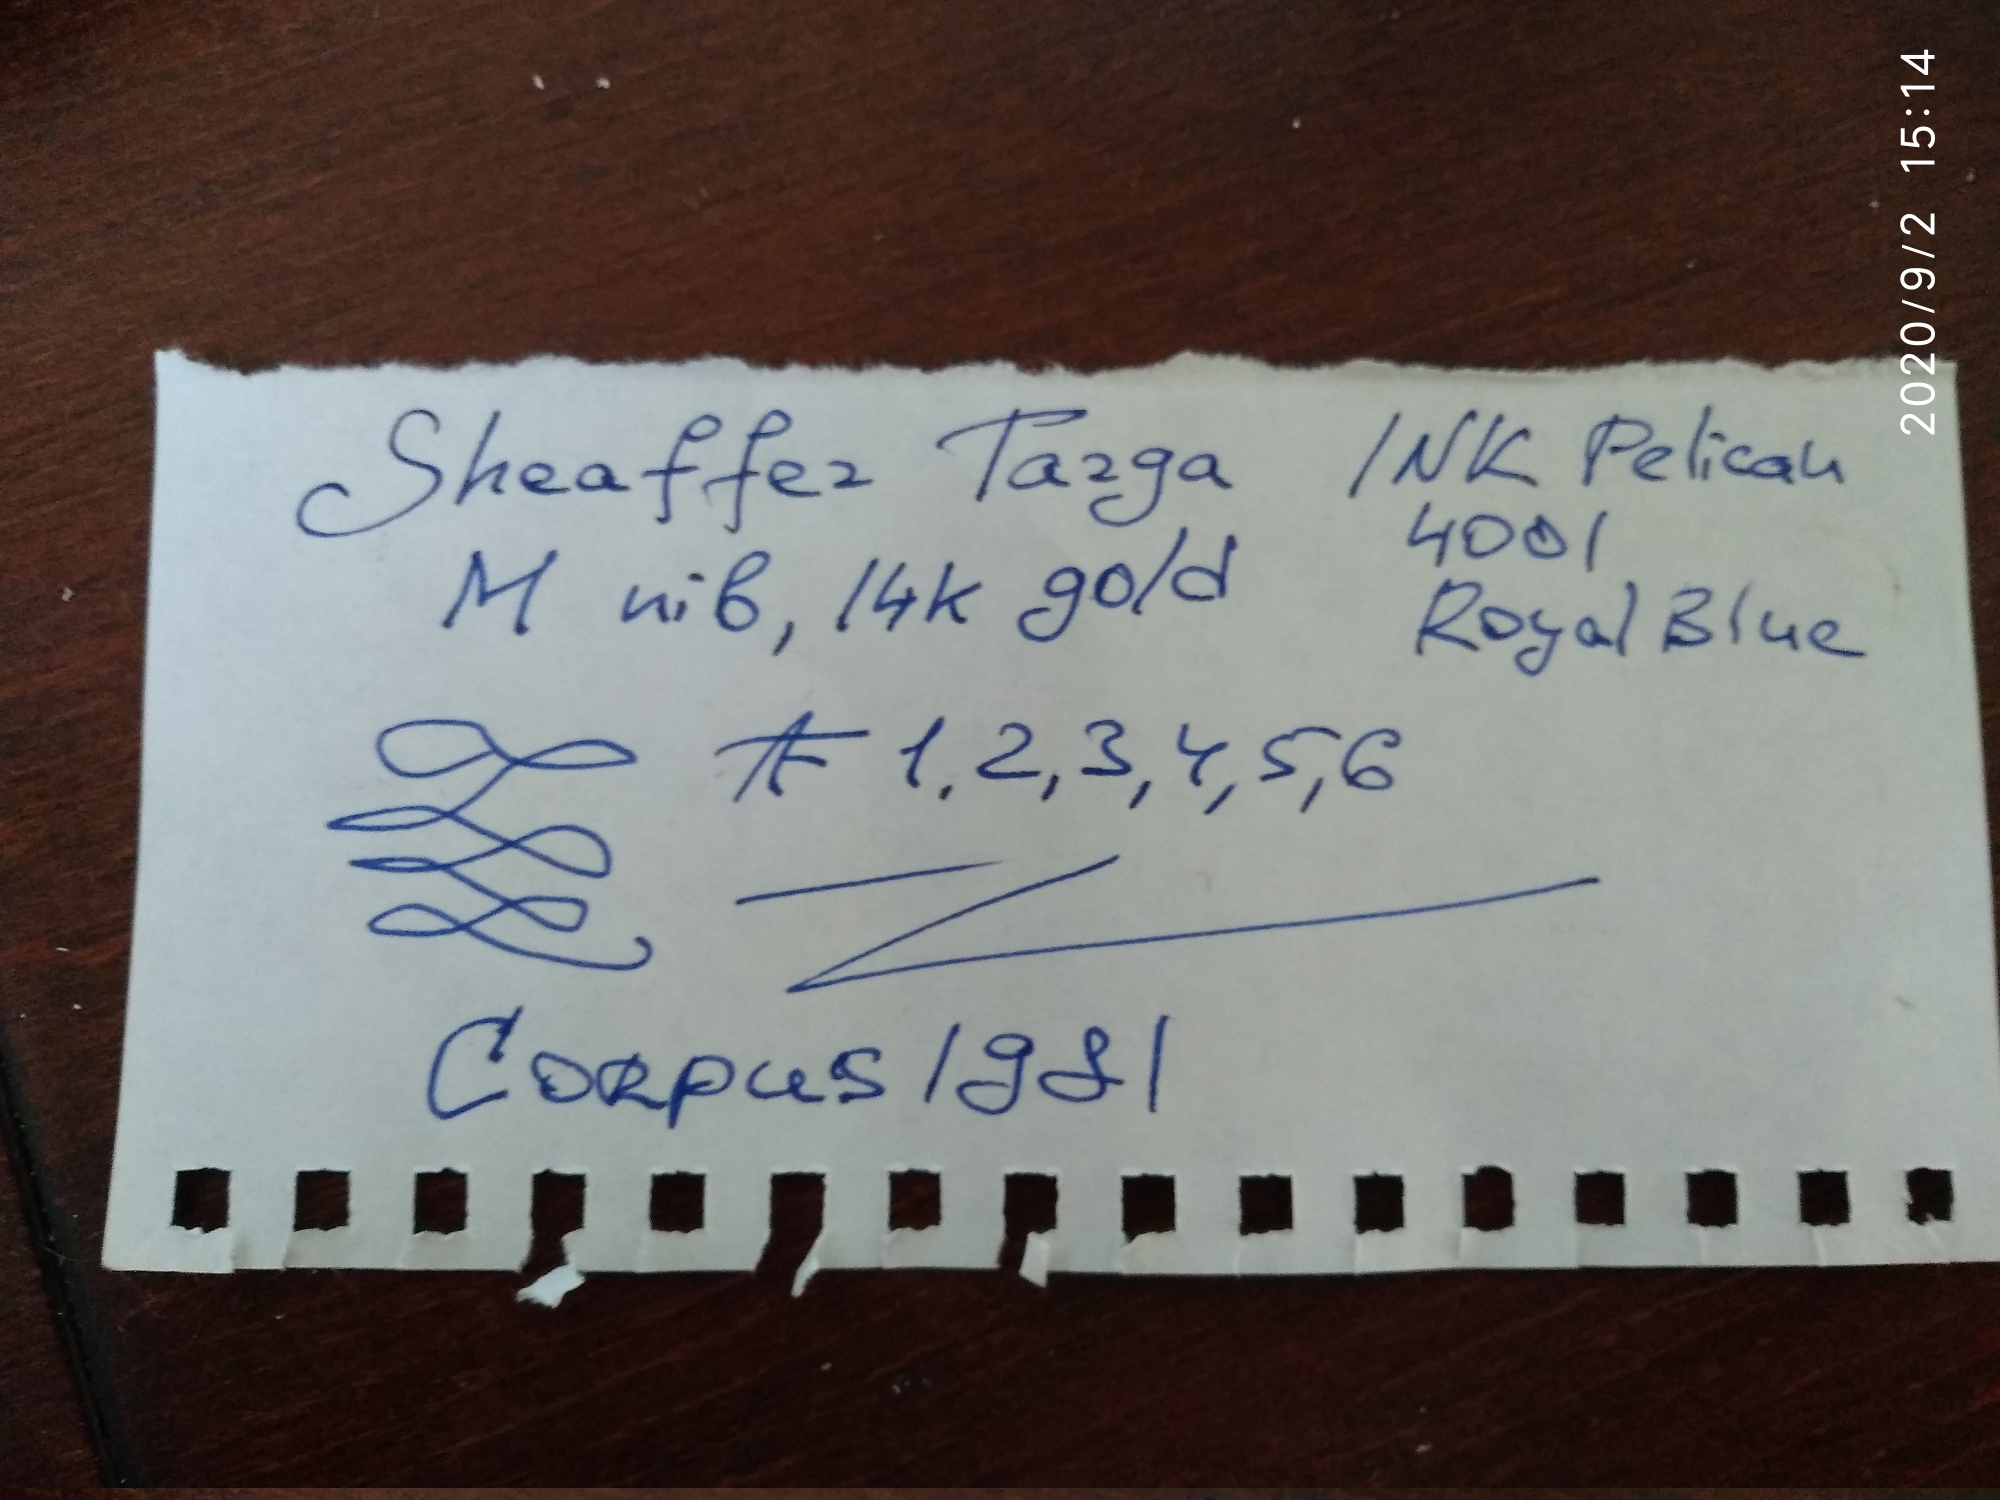 Sheaffer Targa
M nib, 14k gold
INK Pelican
4001
Royal Blue
# 1,2,3,4,5,6
Corpus 1981
2020/9/2 15:14